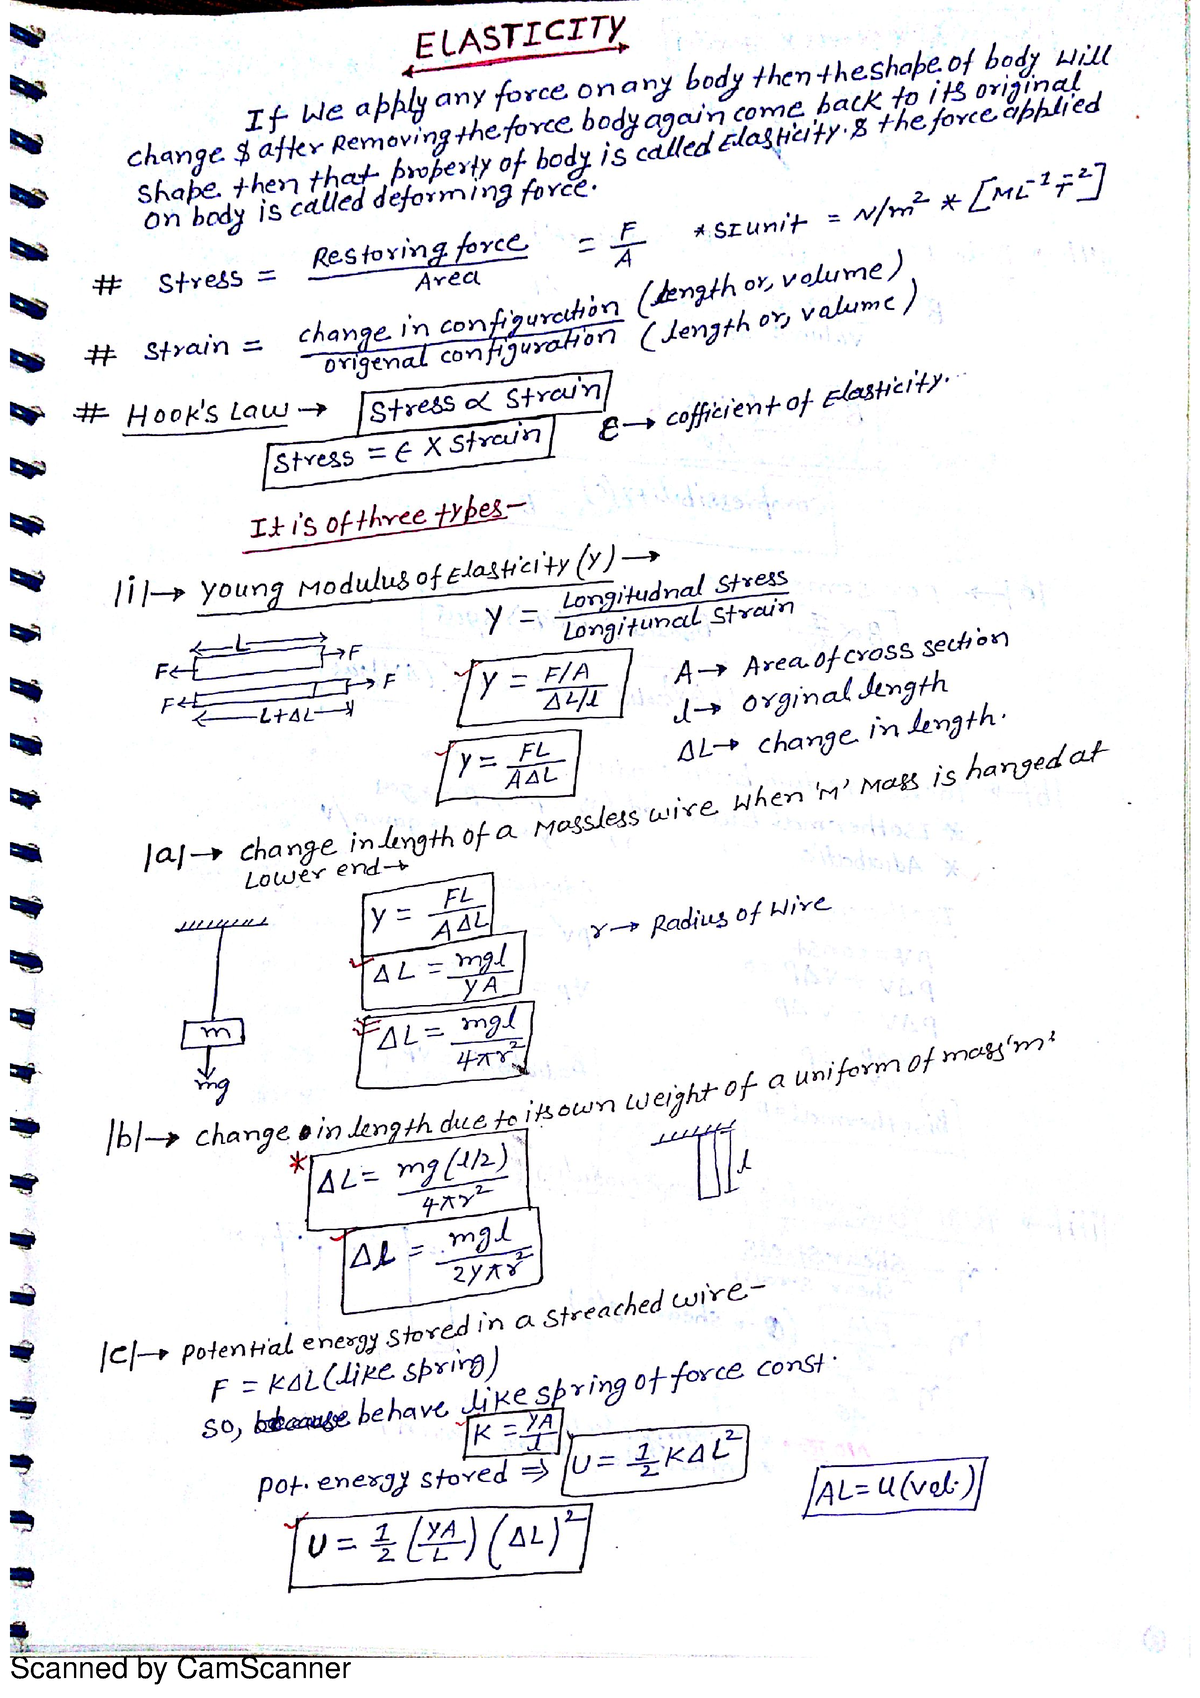 ELASTICITY
If We apply any force on any body then the shape of body will
change & after Removing the force body again come back to its original
shape then that property of body is called Elasticity. & the force applied
on body is called deforming force.
# Stress = Restoring force / Area = F/A * SI unit = N/m² * [ML⁻¹T⁻²]
# Strain = change in configuration (length or, volume) / origenal configuration (length or, valume)
# Hook's Law → Stress ∝ Strain
Stress = E X Strain E → cofficient of Elasticity..
It is of three types-
|i|→ Young Modulus of Elasticity (Y) →
Y = Longitudnal Stress / Longitunal Strain
L
F F
F F
L+ΔL
Y = F/A / ΔL/l
A → Area of cross section
l → orginal length
ΔL → change in length.
Y = FL / AΔL
|a|→ change in length of a Massless wire when 'M' Mass is hanged at
Lower end→
Y = FL / AΔL
r → Radius of Wire
ΔL = mgl / YA
ΔL = mgl / 4πr²
m
mg
|b|→ change in length due to its own weight of a uniform of mass 'm'
* ΔL = mg(l/2) / 4πr²
l
Δl = mgl / 2Yπr²
|c|→ Potential energy stored in a streached wire-
F = KΔL (like spring)
so, behave like spring of force const.
K = YA / l
Pot. energy stored ⇒ U = 1/2 KΔL²
AL = u (vol.)
U = 1/2 (YA/L) (ΔL)²
Scanned by CamScanner